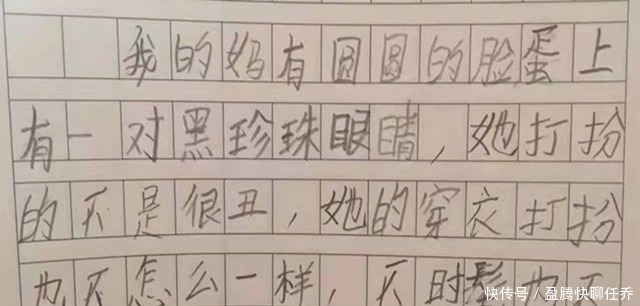 我的妈有圆圆的脸蛋上
有一对黑珍珠眼睛，她打扮
的不是很丑，她的穿衣打扮
也不怎么一样，不时髦也不
快传号／盈腾快聊任乔